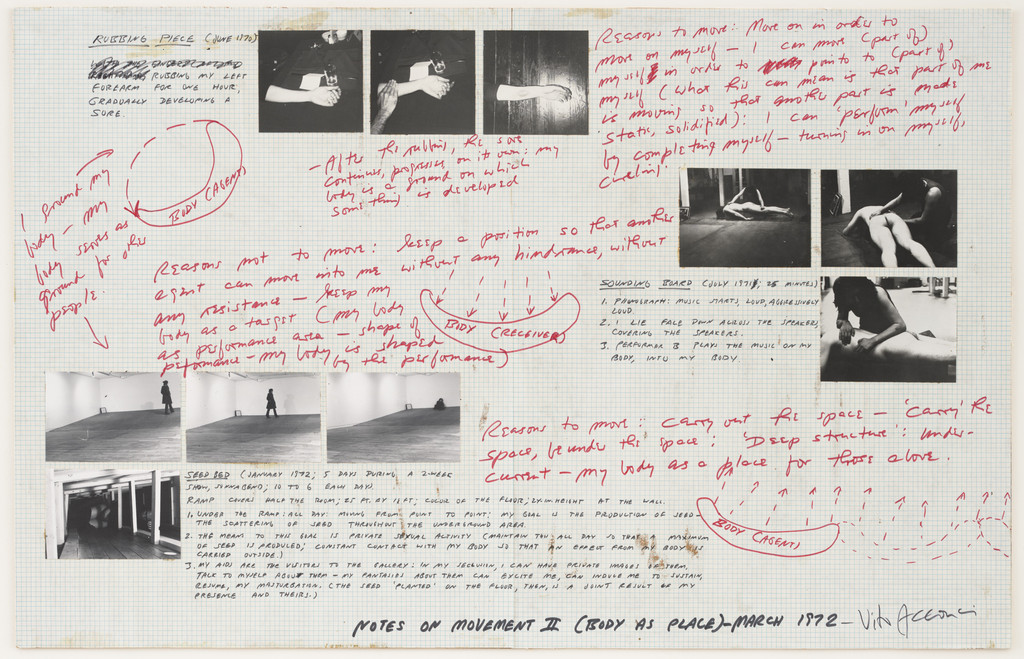 RUBBING PIECE (JUNE 1970)
RUBBING MY LEFT
FOREARM FOR ONE HOUR,
GRADUALLY DEVELOPING A
SORE.
Reasons to move: Move on in order to
move on myself – I can move (part of)
myself in order to points to (part of)
myself (what this can mean is that part of me
is moving so that another part is made
static, solidified): I can 'perform' myself
by completing myself – turning in on myself,
circling.
– After the rubbing, the sore
continues, progresses on its own: my
body is a ground on which
something is developed
BODY (AGENT)
I ground my
body – my
body serves as
ground for other
people.
Reasons not to move: keep a position so that another
agent can move into me without any hindrance, without
any resistance – keep my
body as a target (my body
as performance area – shape of
performance – my body is shaped
by the performance)
BODY (RECEIVER)
SOUNDING BOARD (JULY 1971; 25 MINUTES)
1. PHONOGRAPH: MUSIC STARTS, LOUD, AGGRESSIVELY
LOUD.
2. I LIE FACE DOWN ACROSS THE SPEAKERS,
COVERING THE SPEAKERS.
3. PERFORMER B PLAYS THE MUSIC ON MY
BODY, INTO MY BODY.
Reasons to move: carry out the space – 'carry' the
space, be under the space; 'Deep structure': under-
current – my body as a place for those above.
BODY (AGENT)
SEEDBED (JANUARY 1972; 5 DAYS DURING A 2-WEEK
SHOW, SONNABEND; 10 TO 6 EACH DAY).
RAMP COVERS HALF THE ROOM; 25 FT. BY 18 FT; COLOR OF THE FLOOR; 2½ IN HEIGHT AT THE WALL.
1. UNDER THE RAMP: ALL DAY: MOVING FROM POINT TO POINT; MY GOAL IS THE PRODUCTION OF SEED –
THE SCATTERING OF SEED THROUGHOUT THE UNDERGROUND AREA.
2. THE MEANS TO THIS GOAL IS PRIVATE SEXUAL ACTIVITY (MAINTAIN THIS ALL DAY SO THAT A MAXIMUM
OF SEED IS PRODUCED; CONSTANT CONTACT WITH MY BODY SO THAT AN EFFECT FROM MY BODY IS
CARRIED OUTSIDE.)
3. MY AIDS ARE THE VISITORS TO THE GALLERY: IN MY SECLUSION, I CAN HAVE PRIVATE IMAGES OF THEM,
TALK TO MYSELF ABOUT THEM – MY FANTASIES ABOUT THEM CAN EXCITE ME, CAN INDUCE ME TO SUSTAIN,
RESUME, MY MASTURBATION. (THE SEED 'PLANTED' ON THE FLOOR, THEN, IS A JOINT RESULT OF MY
PRESENCE AND THEIRS.)
NOTES ON MOVEMENT II (BODY AS PLACE) – MARCH 1972 – Vito Acconci